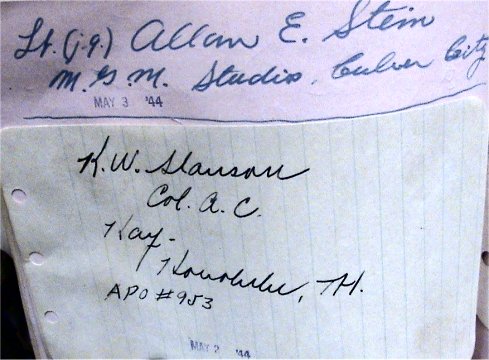 Lt. (j.g.) Allan E. Stein
M.G.M. Studios, Culver City
MAY 3 '44
K.W. Slauson
Col. A.C.
Kay -
Honolulu, TH.
APO #953
MAY 2 '44